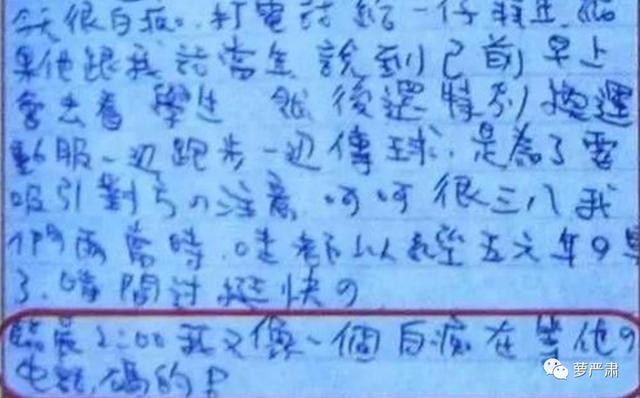 今天很白痴。打電話給一仔
果他跟我話當年 說到己前早上
會去看 學生 然後還特別換運
動服一边跑步一边傳球.是為了要
吸引對方の注意.呵呵很三八我
們兩當時.哇
了.時間过挺快の
臨晨2:00我又像一個白痴在等他の
电話.媽的!
萝严肃